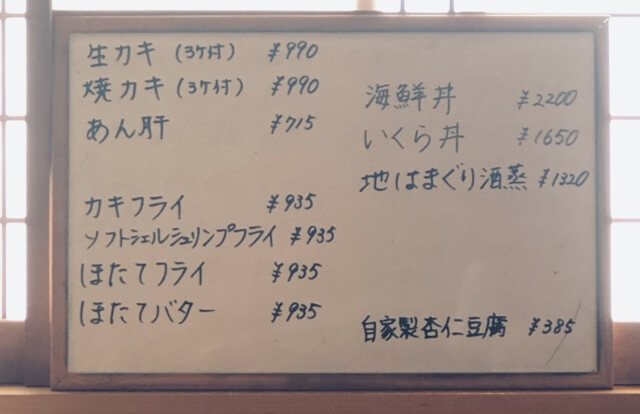 生カキ (3ケ付) ¥990
焼カキ (3ケ付) ¥990
あん肝 ¥715
カキフライ ¥935
ソフトシェルシュリンプフライ ¥935
ほたてフライ ¥935
ほたてバター ¥935
海鮮丼 ¥2200
いくら丼 ¥1650
地はまぐり酒蒸 ¥1320
自家製杏仁豆腐 ¥385